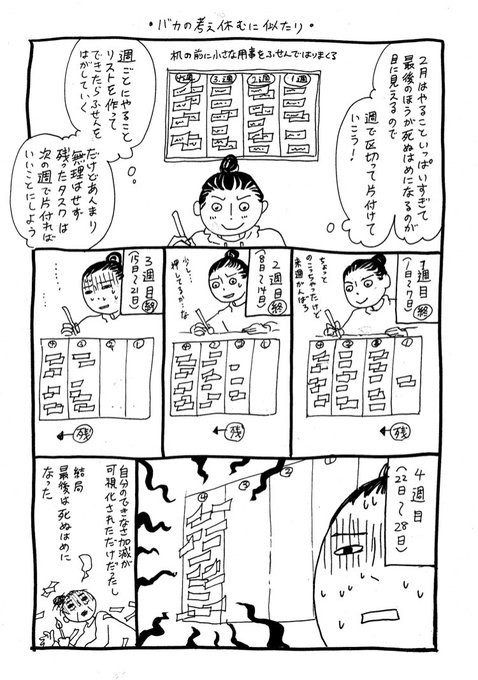 ・バカの考え休むに似たり・
2月はやることいっぱいすぎて
最後のほうが死ぬはめになるのが
目に見えるので
週で区切って片付けて
いこう!
机の前に小さな用事をふせんではりまくる
1週
2週
3週
4週
週ごとにやること
リストを作って
できたらふせんを
はがしていく
だけどあんまり
無理はせず
残ったタスクは
次の週で片付ければ
いいことにしよう
1週目
(1日〜7日)
終
ちょっと
のこっちゃったけど
来週がんばろ
④
③
②
①
←残
2週目
(8日〜14日)
終
少し…
押してるか…な
④
③
②
①
←残
3週目
(15日〜21日)
終
………
……
④
③
②
①
←残
4週目
(22日〜28日)
④
③
②
①
自分のできなさ加減が
可視化されただけだったし
結局
最後は死ぬはめに
なった